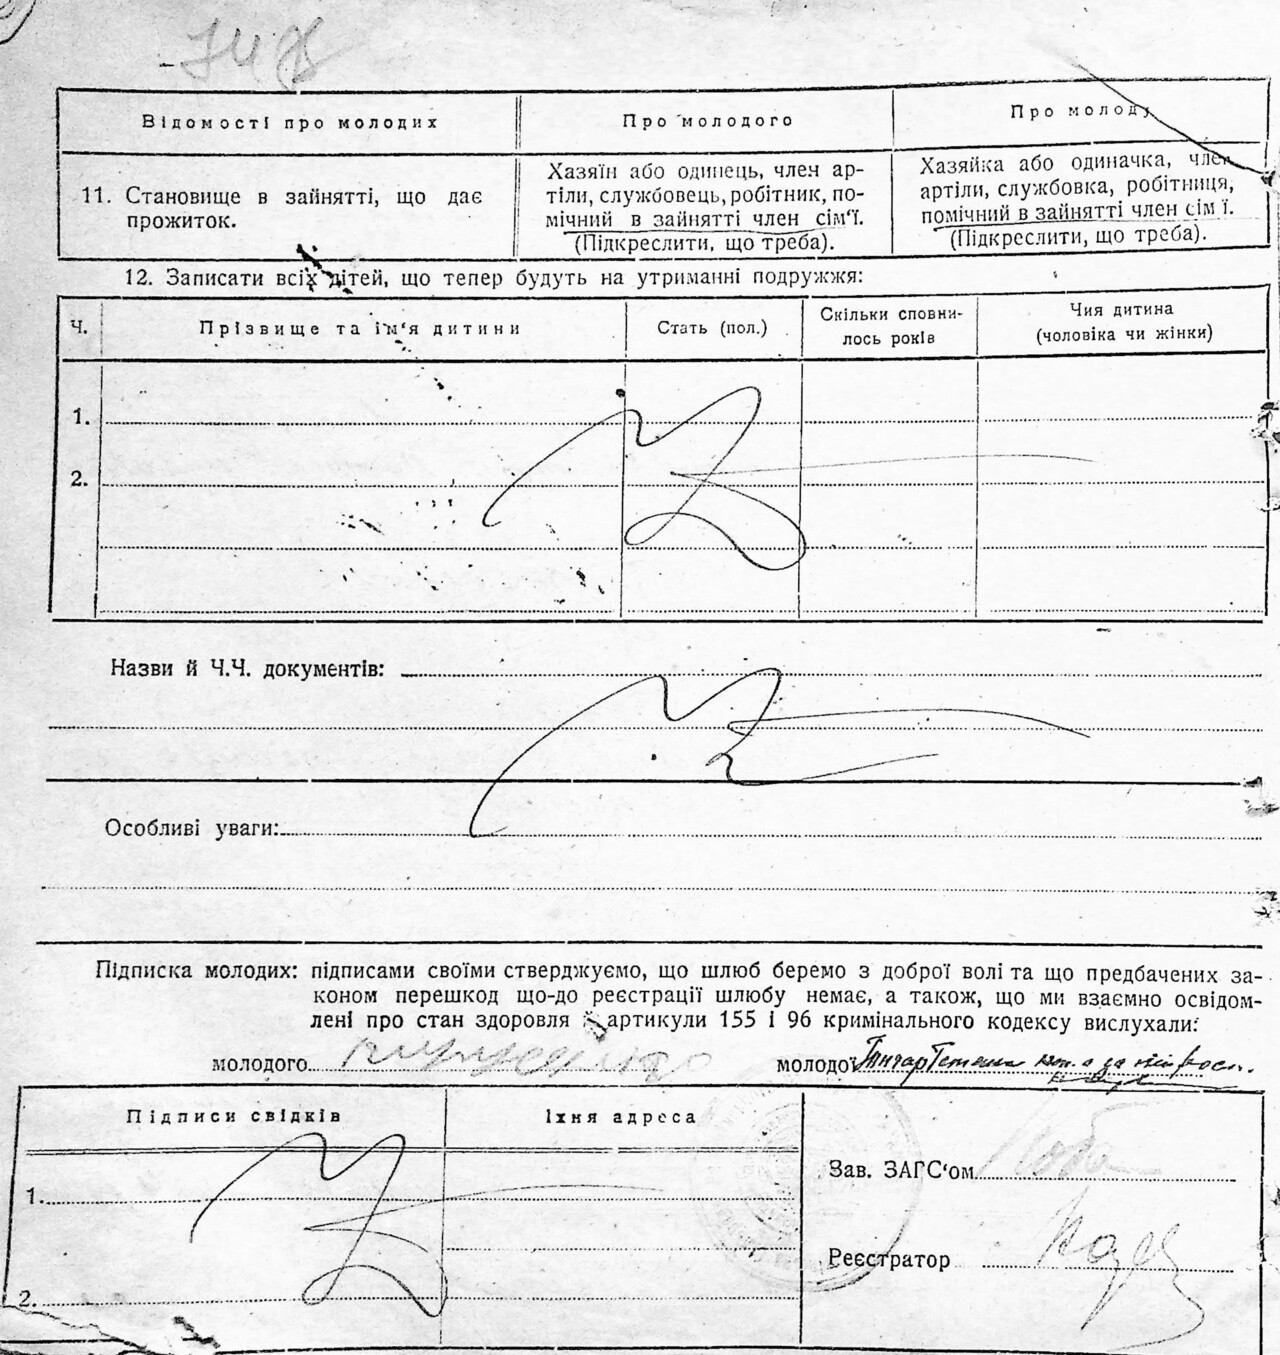 Відомості про молодих
Про молодого
Про молоду
11. Становище в зайнятті, що дає
прожиток.
Хазяїн або одинець, член ар-
тіли, службовець, робітник, по-
мічний в зайнятті член сім'ї.
(Підкреслити, що треба).
Хазяйка або одиначка, член
артіли, службовка, робітниця,
помічний в зайнятті член сім ї.
(Підкреслити, що треба).
12. Записати всіх дітей, що тепер будуть на утриманні подружжя:
Ч.
Прізвище та ім'я дитини
Стать (пол.)
Скільки сповни-
лось років
Чия дитина
(чоловіка чи жінки)
1.
2.
Назви й Ч.Ч. документів:
Особливі уваги:
Підписка молодих: підписами своїми стверджуємо, що шлюб беремо з доброї волі та що предбачених за-
коном перешкод що-до реєстрації шлюбу немає, а також, що ми взаємно освідом-
лені про стан здоровля й артикули 155 і 96 кримінального кодексу вислухали:
молодого
молодої Гончар
Підписи свідків
Їхня адреса
1.
2.
Зав. ЗАГС'ом Лоба
Реєстратор